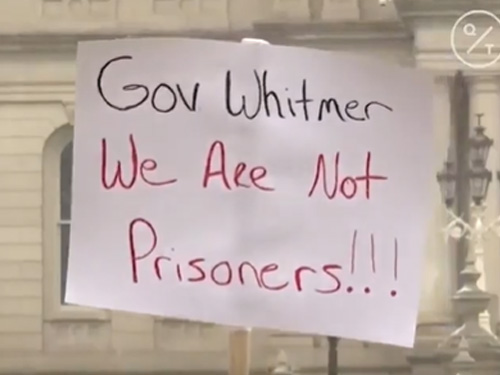 Gov Whitmer
We Are Not
Prisoners!!!